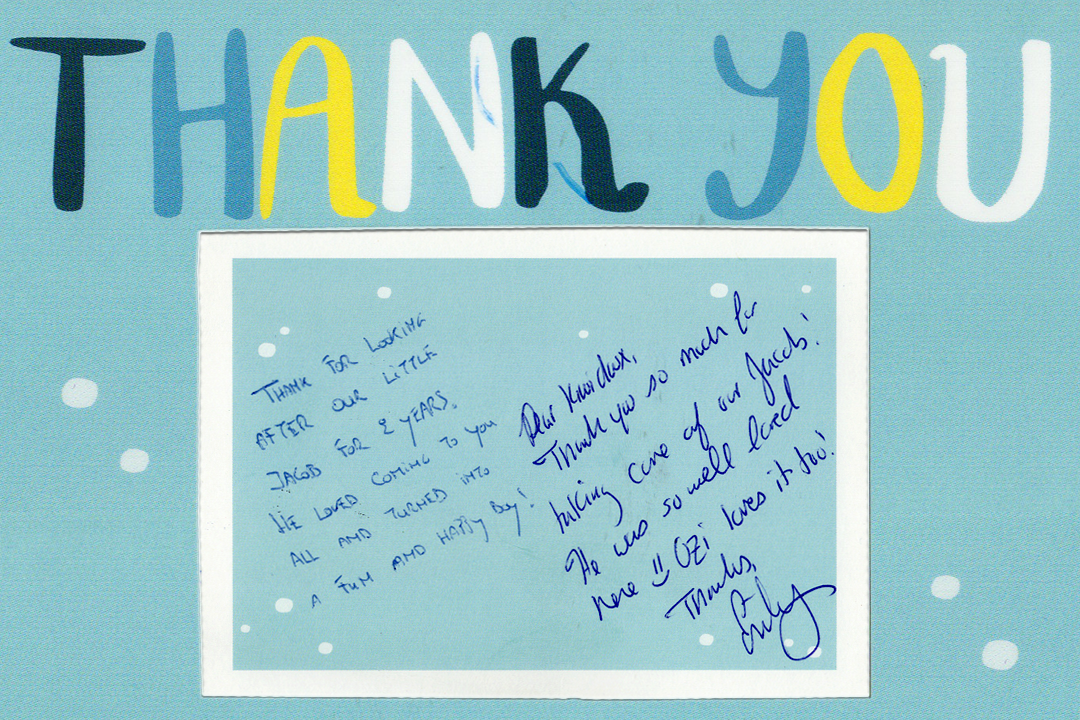 THANK YOU
THANK FOR LOOKING
AFTER OUR LITTLE
JACOB FOR 2 YEARS.
HE LOVED COMING TO YOU
ALL AND TURNED INTO
A FUN AND HAPPY BOY!
Dear
Thank you so much for
taking care of our Jacob!
He was so well loved
here !! Ozi loves it too!
Thanks,